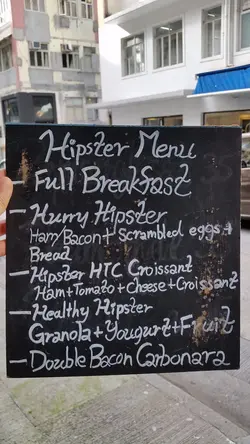 Hipster Menu
– Full Breakfast
– Hurry Hipster
Ham/Bacon + Scrambled eggs +
Bread
– Hipster HTC Croissant
Ham+Tomato+Cheese+Croissant
– Healthy Hipster
Granola+Yougurt+Fruit
– Double Bacon Carbonara